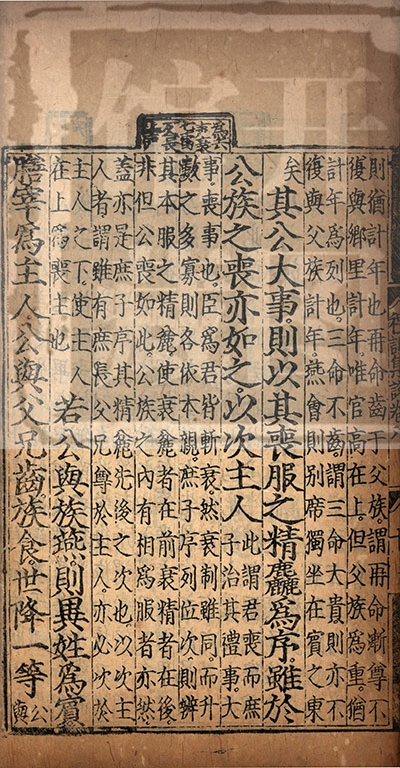 則猶計年也再命齒于父族謂再命漸尊不
復與鄉里計年唯官高在上但父族為重猶
計年為列也三命不齒謂三命大貴則亦不
復與父族計年燕會則別席獨坐在賓之東
矣
其公大事則以其喪服之精麤為序雖於
公族之喪亦如之以次主人
此謂君喪而庶
子治其禮事大
事喪事也臣為君皆斬衰然衰制雖同而升
數之多寡則各依本親庶子序列位次則辨
其本服之精麤使衰麤者在前衰精者在後
非但公喪如此公族之內有相為服者亦然
蓋亦是庶子序其精麤先後之次也以次主
人者謂雖有庶長父兄尊於主人亦必次於
主人之下使主人
在上為喪主也
若公與族燕則異姓為賓
膳宰為主人公與父兄齒族食世降一等
公
與